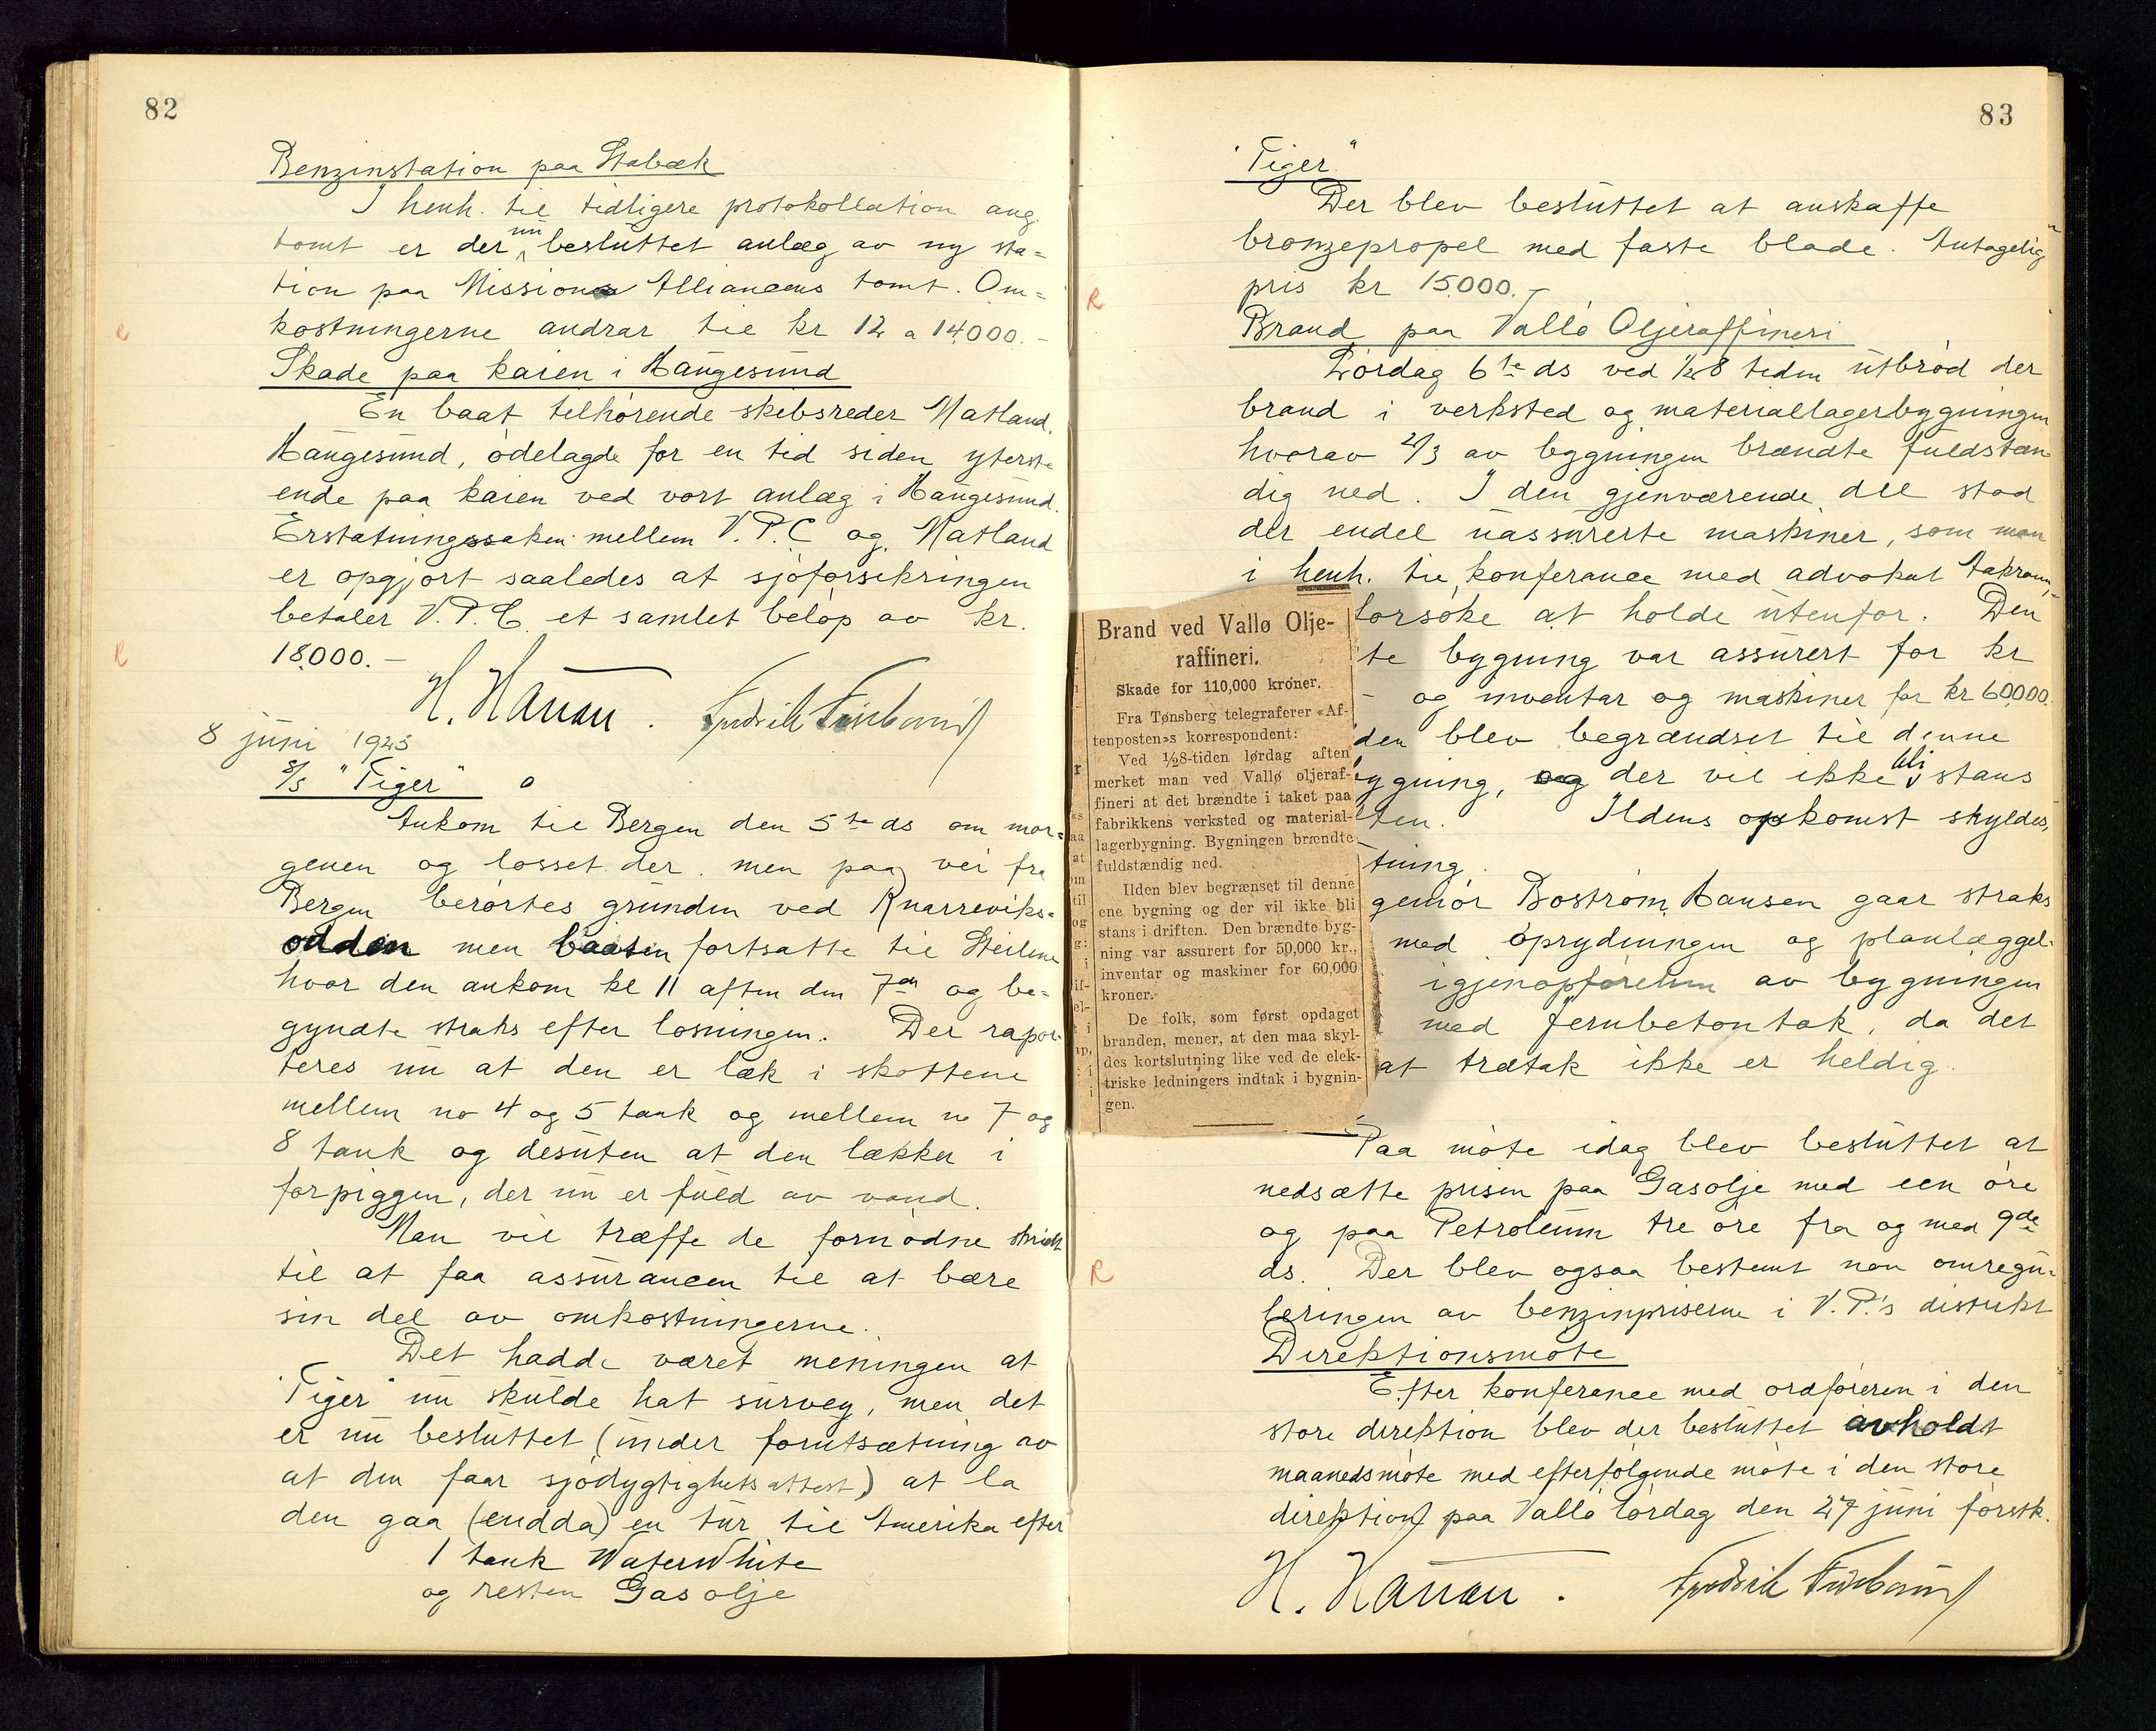 82
Benzinstation paa Stabæk
I henh. til tidligere protokollation ang.
tomt er der nu besluttet anlæg av ny sta=
tion paa Missions Alliancens tomt. Om=
kostningerne andrar til kr 12 a 14000.-
R
Skade paa kaien i Haugesund
En baat tilhørende skibsreder Matland,
Haugesund, ödelagde for en tid siden yterste
ende paa kaien ved vort anlæg i Haugesund.
Erstatningssaken mellem V.P.C og Matland
er opgjort saaledes at sjöforsikringen
betaler V.P.C. et samlet belöp av kr.
R
18000.-
H. Hansen. Fredrik
8 juni 1925
S/S "Tiger"
Ankom til Bergen den 5te ds om mor=
genen og losset der. men paa vei fra
Bergen berörtes grunden ved Knarreviks=
odden men baaten fortsatte til Steilene
hvor den ankom kl 11 aften den 7de og be=
gyndte straks efter losningen. Der rapor-
teres nu at den er læk i skottene
mellem no 4 og 5 tank og mellem no 7 og
8 tank og desuten at den lækker i
forpiggen, der nu er fuld av vand.
Man vil træffe de fornödne skridt
til at faa assurancen til at bære
sin del av omkostningerne.
Det hadde været meningen at
"Tiger" nu skulde hat survey, men det
er nu besluttet (under forutsætning av
at den faar sjödygtighetsattest) at la
den gaa (endda) en tur til Amerika efter
1 tank Waterwhite
og resten Gasolje
83
"Tiger"
Der blev besluttet at anskaffe
bronzepropel med faste blade. Antagelig
pris kr 15000.-
R
Brand paa Vallö Oljeraffineri
Lördag 6te ds ved ½8 tiden utbröd der
brand i verksted og materiallagerbygningen
hvorav 2/3 av bygningen brændte fuldstæn
dig ned. I den gjenværende del stod
der endel uassurerte maskiner, som man
i henh. til konferance med advokat
forsöke at holde utenfor. Den
te bygning var assurert for kr
- og inventar og maskiner for kr 60000.
den blev begrændset til denne
bygning, og der vil ikke bli stans
ten. Ildens opkomst skyldes,
tning.
geniör Boström Hansen gaar straks
med oprydningen og planlæggel-
igjenopförelsen av bygningen
med Jernbetontak, da det
at trætak ikke er heldig.
Brand ved Vallø Olje-
raffineri.
Skade for 110,000 kroner.
Fra Tønsberg telegraferer «Af-
tenposten»s korrespondent:
Ved ½8-tiden lørdag aften
merket man ved Vallø oljeraf-
fineri at det brændte i taket paa
fabrikkens verksted og material-
lagerbygning. Bygningen brændte
fuldstændig ned.
Ilden blev begrænset til denne
ene bygning og der vil ikke bli
stans i driften. Den brændte byg-
ning var assurert for 50,000 kr.,
inventar og maskiner for 60,000
kroner.
De folk, som først opdaget
branden, mener, at den maa skyl-
des kortslutning like ved de elek-
triske ledningers indtak i bygnin-
gen.
Paa möte idag blev besluttet at
nedsætte prisen paa Gasolje med een öre
og paa Petroleum tre öre fra og med 9de
R
ds. Der blev ogsaa bestemt non omregu-
leringen av benzinpriserne i V.P.'s distrikt
Direktionsmöte
Efter konferance med ordföreren i den
store direktion blev der besluttet avholdt
maanedsmöte med efterfölgende möte i den store
direktion paa Vallö lördag den 27 juni förstk.
H. Hansen. Fredrik